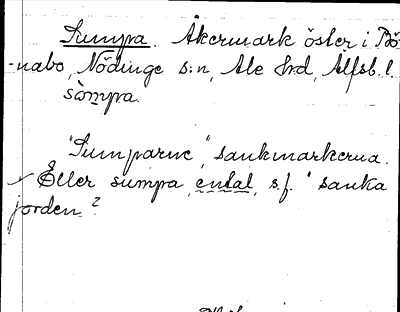 Sumpa. Åkermark öster i Bö-
nabo, Nödinge s:n, Ale hrd, Älfsb. l.
sòmpa.
"Sumparne", sankmarkerna.
Eller sumpa, ental, s.f. "sanka
jorden"?